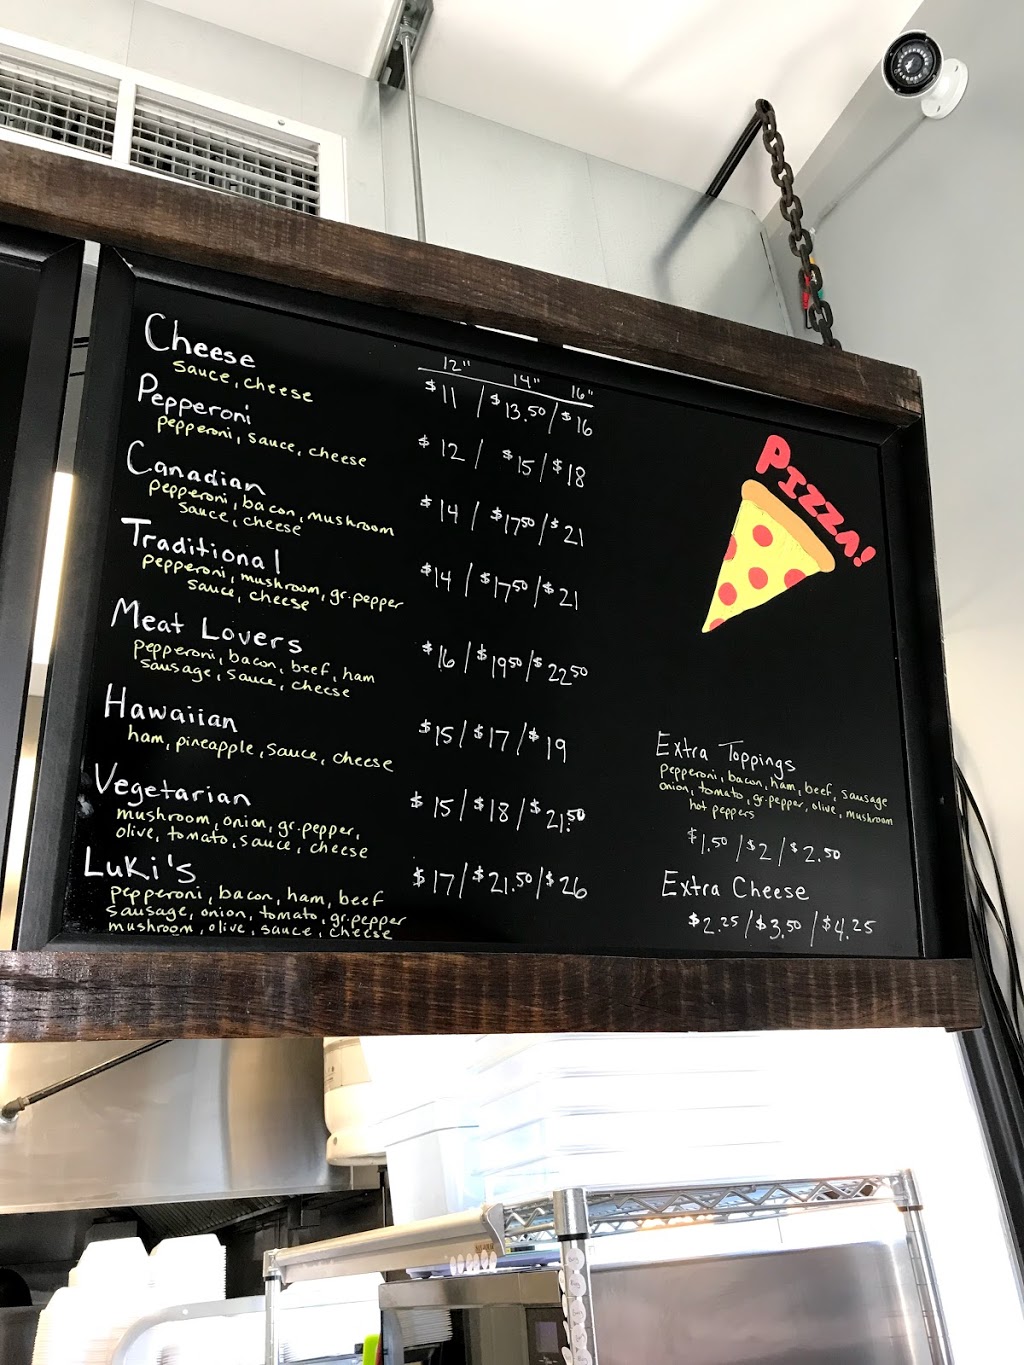 Cheese
sauce, cheese
12" 14" 16"
$11 / $13.50 / $16
Pepperoni
pepperoni, sauce, cheese
$12 / $15 / $18
Canadian
pepperoni, bacon, mushroom
sauce, cheese
$14 / $17.50 / $21
Traditional
pepperoni, mushroom, gr.pepper
sauce, cheese
$14 / $17.50 / $21
Meat Lovers
pepperoni, bacon, beef, ham
sausage, sauce, cheese
$16 / $19.50 / $22.50
Hawaiian
ham, pineapple, sauce, cheese
$15 / $17 / $19
Vegetarian
mushroom, onion, gr.pepper,
olive, tomato, sauce, cheese
$15 / $18 / $21.50
Luki's
pepperoni, bacon, ham, beef
sausage, onion, tomato, gr.pepper
mushroom, olive, sauce, cheese
$17 / $21.50 / $26
PIZZA!
Extra Toppings
Pepperoni, bacon, ham, beef, sausage
onion, tomato, gr.pepper, olive, mushroom
hot peppers
$1.50 / $2 / $2.50
Extra Cheese
$2.25 / $3.50 / $4.25